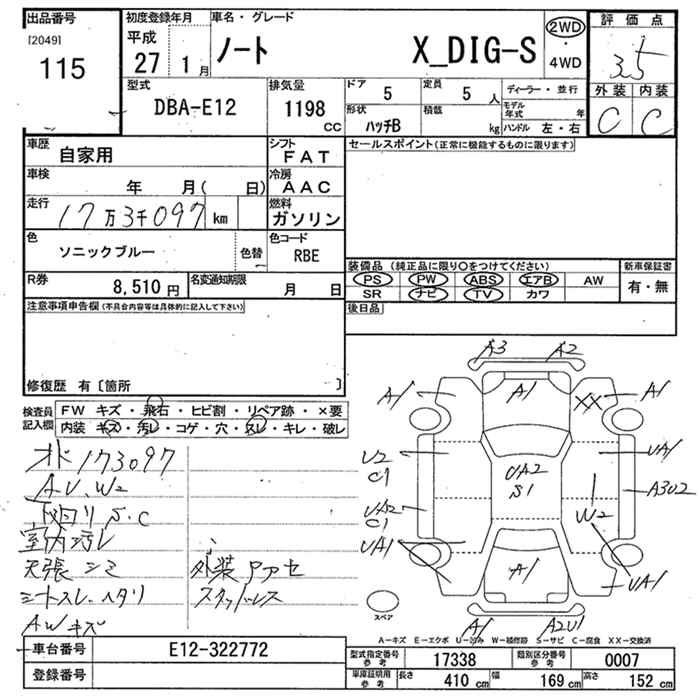 出品番号
[2049]
115
初度登録年月
平成
27 1月
車名・グレード
ノート X_DIG-S
2WD
・
4WD
評価点
3.5
外装 内装
C C
型式
DBA-E12
排気量
1198
CC
ドア
5
定員
5 人
ディーラー・並行
形状
ハッチB
積載
kg
モデル年式 年
ハンドル 左・右
車歴
自家用
シフト
FAT
セールスポイント(正常に機能するものに限ります)
車検
年 月( 日)
冷房
AAC
走行
17万3千097 km
燃料
ガソリン
色
ソニックブルー
色替
色コード
RBE
装備品(純正品に限り〇をつけてください)
新車保証書
PS PW ABS エアB AW
有・無
SR ナビ TV カワ
R券
8,510 円
名変通知期限
月 日
後日品
注意事項申告欄(不具合内容等は具体的に記入して下さい)
修復歴 有〔箇所 〕
検査員
記入欄
FW キズ・飛石・ヒビ割・リペア跡・×要
内装 キズ・汚レ・コゲ・穴・スレ・キレ・破レ
オド173097
AU、W2
下回りS、C
室内汚レ
天張シミ
シートスレ、ヘタリ
AWキズ
外装アアセ
スタッドレス
A3 A2
A1 A1 XX A1
U2
C1
UA2
S1
UA1
A3U2
UA2
C1
W2
UA1
A1
UA1
A1 A2U1
スペア
A-キズ E-エクボ U-凹み W-補修跡 S-サビ C-腐食 XX-交換済
車台番号
E12-322772
登録番号
型式指定番号
参考
17338
類別区分番号
参考
0007
車庫証明用
参考
長さ 410 cm
幅 169 cm
高さ 152 cm